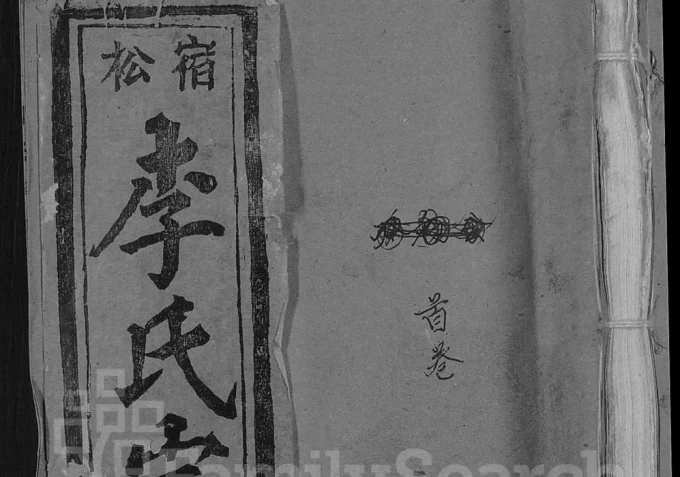 宿松
李氏宗
首卷
FamilySearch